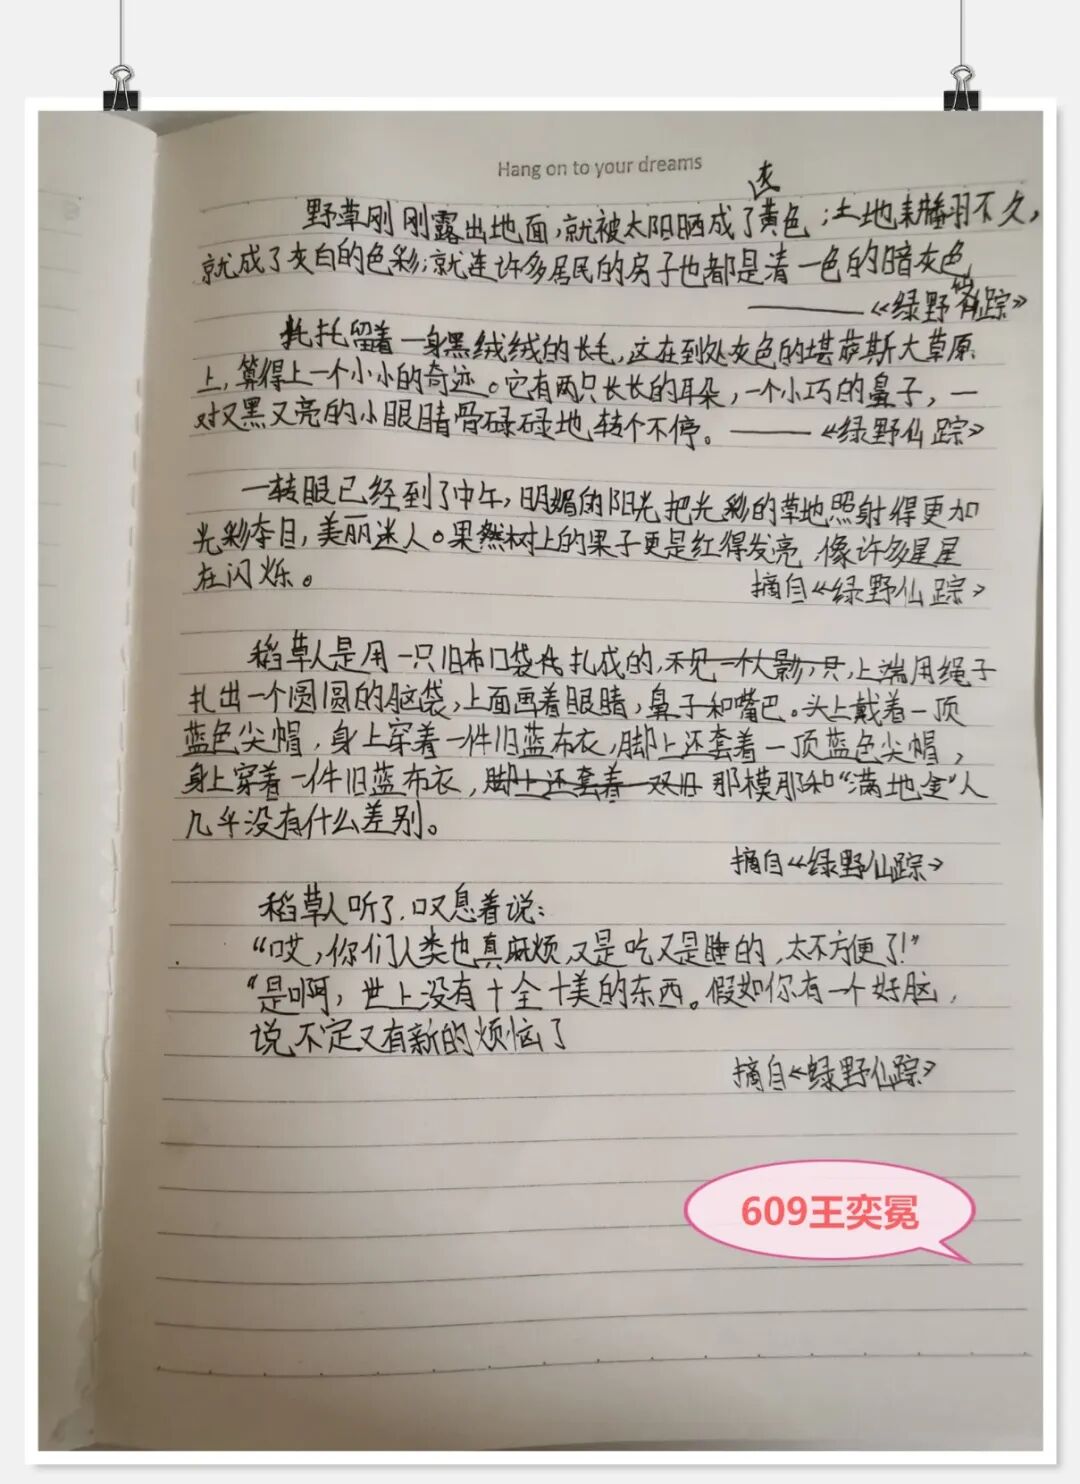 Hang on to your dreams
灰
野草刚刚露出地面,就被太阳晒成了黄色;土地耕翻不久,
就成了灰白的色彩;就连许多居民的房子也都是清一色的暗灰色
——《绿野仙踪》
托托留着一身黑绒绒的长毛,这在到处灰色的堪萨斯大草原
上,算得上一个小小的奇迹。它有两只长长的耳朵,一个小巧的鼻子,一
对又黑又亮的小眼睛骨碌碌地转个不停。——《绿野仙踪》
一转眼已经到了中午,明媚的阳光把光彩的草地照射得更加
光彩夺目,美丽迷人。果然树上的果子更是红得发亮 像许多星星
在闪烁。
摘自《绿野仙踪》
稻草人是用一只旧布口袋扎成的,不见一个人影,只,上端用绳子
扎出一个圆圆的脑袋,上面画着眼睛,鼻子和嘴巴。头上戴着一顶
蓝色尖帽,身上穿着一件旧蓝布衣,脚上还套着一顶蓝色尖帽,
身上穿着一件旧蓝布衣,脚上还套着一双旧 那模那和“满地金”人
几乎没有什么差别。
摘自《绿野仙踪》
稻草人听了,叹息着说:
“哎,你们人类也真麻烦,又是吃又是睡的,太不方便了!”
“是啊,世上没有十全十美的东西。假如你有一个好脑,
说不定又有新的烦恼了
摘自《绿野仙踪》
609王奕冕